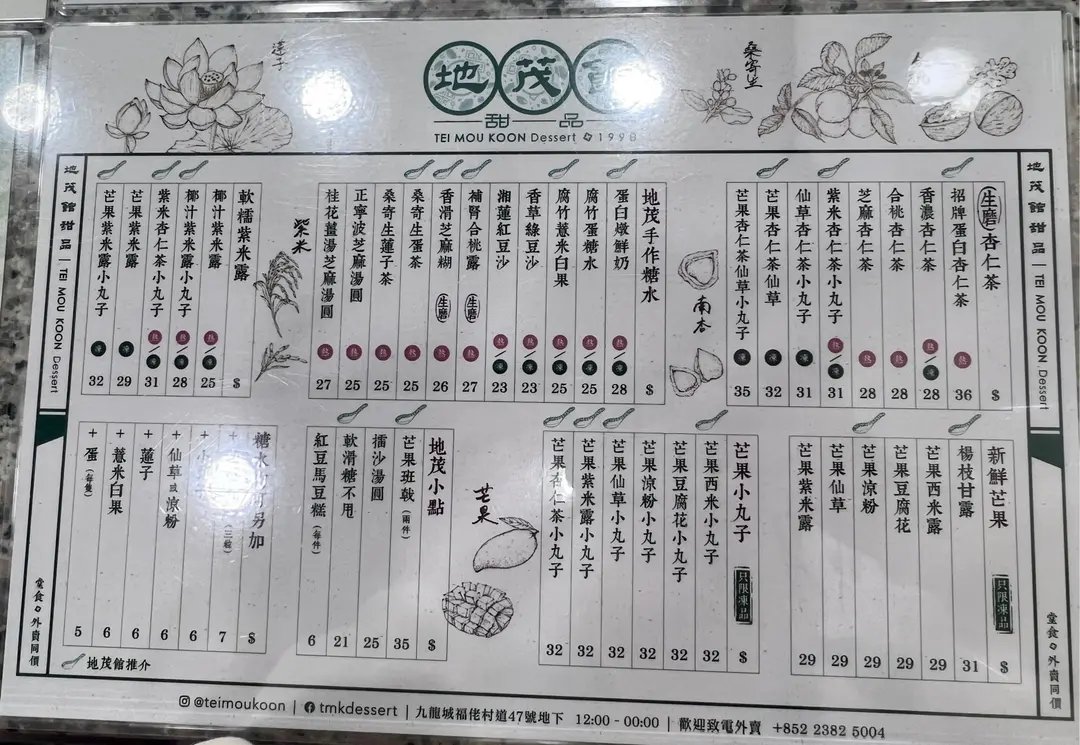 蓮子
地茂
甜品
TEI MOU KOON Dessert 1998
桑寄生
地茂館甜品 | TEI MOU KOON Dessert
生磨 杏仁茶 $
招牌蛋白杏仁茶 熱 36
香濃杏仁茶 熱/凍 28
合桃杏仁茶 熱 28
芝麻杏仁茶 熱 28
紫米杏仁茶小丸子 熱/凍 31
仙草杏仁茶小丸子 凍 31
芒果杏仁茶仙草 凍 32
芒果杏仁茶仙草小丸子 凍 35
南杏
地茂手作糖水 $
蛋白燉鮮奶 熱/凍 28
腐竹蛋糖水 熱/凍 25
腐竹薏米白果 熱/凍 25
香草綠豆沙 熱/凍 23
湘蓮紅豆沙 熱/凍 23
補腎合桃露 生磨 熱 27
香滑芝麻糊 生磨 熱 26
桑寄生蛋茶 熱 25
桑寄生蓮子茶 熱 25
正寧波芝麻湯圓 熱 25
桂花薑湯芝麻湯圓 熱 27
紫米
軟糯紫米露 $
椰汁紫米露 熱/凍 25
椰汁紫米露小丸子 熱/凍 28
紫米杏仁茶小丸子 熱/凍 31
芒果紫米露 凍 29
芒果紫米露小丸子 凍 32
地茂館甜品 | TEI MOU KOON Dessert
新鮮芒果 只限凍品 $
楊枝甘露 31
芒果西米露 29
芒果豆腐花 29
芒果涼粉 29
芒果仙草 29
芒果紫米露 29
芒果小丸子 只限凍品 $
芒果西米小丸子 32
芒果豆腐花小丸子 32
芒果涼粉小丸子 32
芒果仙草小丸子 32
芒果紫米露小丸子 32
芒果杏仁茶小丸子 32
芒果
地茂小點 $
芒果班戟（兩件） 35
擂沙湯圓 25
軟滑糖不甩 21
紅豆馬豆糕（每件） 6
糖水 另加 $
+ （三粒） 7
+ 小 6
+ 仙草或涼粉 6
+ 蓮子 6
+ 薏米白果 6
+ 蛋（每隻） 5
地茂館推介
堂食 外賣同價
堂食 外賣同價
@teimoukoon | tmkdessert | 九龍城福佬村道47號地下 12:00 - 00:00 | 歡迎致電外賣 +852 2382 5004